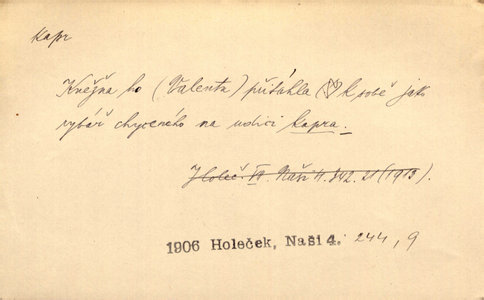 kapr
Kněžna ho (Valenta) přitáhla k sobě jako
rybář chyceného na udici kapra.
Holeč. VI. Naši II. 21 (1913).
1906 Holeček, Naši 4. 244, 9